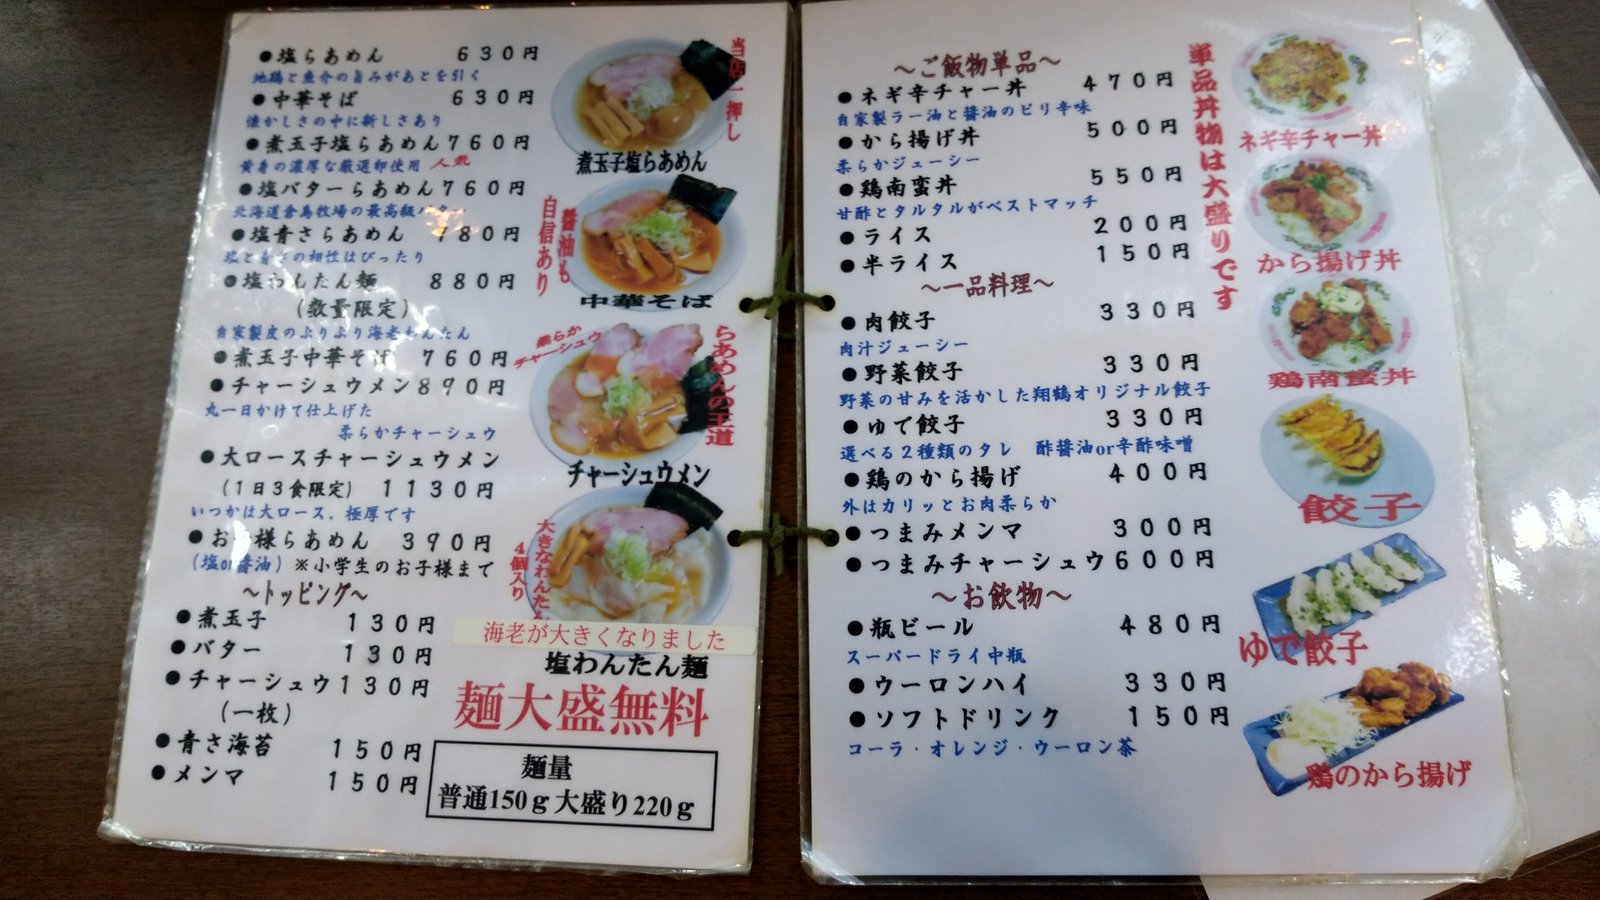 ●塩らあめん 630円
地鶏と魚介の旨みがあとを引く
●中華そば 630円
懐かしさの中に新しさあり
●煮玉子塩らあめん 760円
黄身の濃厚な厳選卵使用 人気
●塩バターらあめん 760円
北海道倉島牧場の最高級バター
●塩青さらあめん 780円
塩と青さの相性はぴったり
●塩わんたん麺 880円
(数量限定)
自家製皮のぷりぷり海老わんたん
●煮玉子中華そば 760円
●チャーシュウメン 890円
丸一日かけて仕上げた
柔らかチャーシュウ
●大ロースチャーシュウメン
(1日3食限定) 1130円
いつかは大ロース、極厚です
●お子様らあめん 390円
(塩or醤油) ※小学生のお子様まで
～トッピング～
●煮玉子 130円
●バター 130円
●チャーシュウ 130円
(一枚)
●青さ海苔 150円
●メンマ 150円
当店一押し
煮玉子塩らあめん
醤油も
自信あり
中華そば
柔らか
チャーシュウ
らあめんの王道
チャーシュウメン
大きなわんたん
4個入り
海老が大きくなりました
塩わんたん麺
麺大盛無料
麺量
普通150g 大盛り220g
～ご飯物単品～
●ネギ辛チャー丼 470円
自家製ラー油と醤油のピリ辛味
●から揚げ丼 500円
柔らかジューシー
●鶏南蛮丼 550円
甘酢とタルタルがベストマッチ
●ライス 200円
●半ライス 150円
～一品料理～
●肉餃子 330円
肉汁ジューシー
●野菜餃子 330円
野菜の甘みを活かした翔鶴オリジナル餃子
●ゆで餃子 330円
選べる2種類のタレ 酢醤油or辛酢味噌
●鶏のから揚げ 400円
外はカリッとお肉柔らか
●つまみメンマ 300円
●つまみチャーシュウ 600円
～お飲物～
●瓶ビール 480円
スーパードライ中瓶
●ウーロンハイ 330円
●ソフトドリンク 150円
コーラ・オレンジ・ウーロン茶
単品丼物は大盛りです
ネギ辛チャー丼
から揚げ丼
鶏南蛮丼
餃子
ゆで餃子
鶏のから揚げ